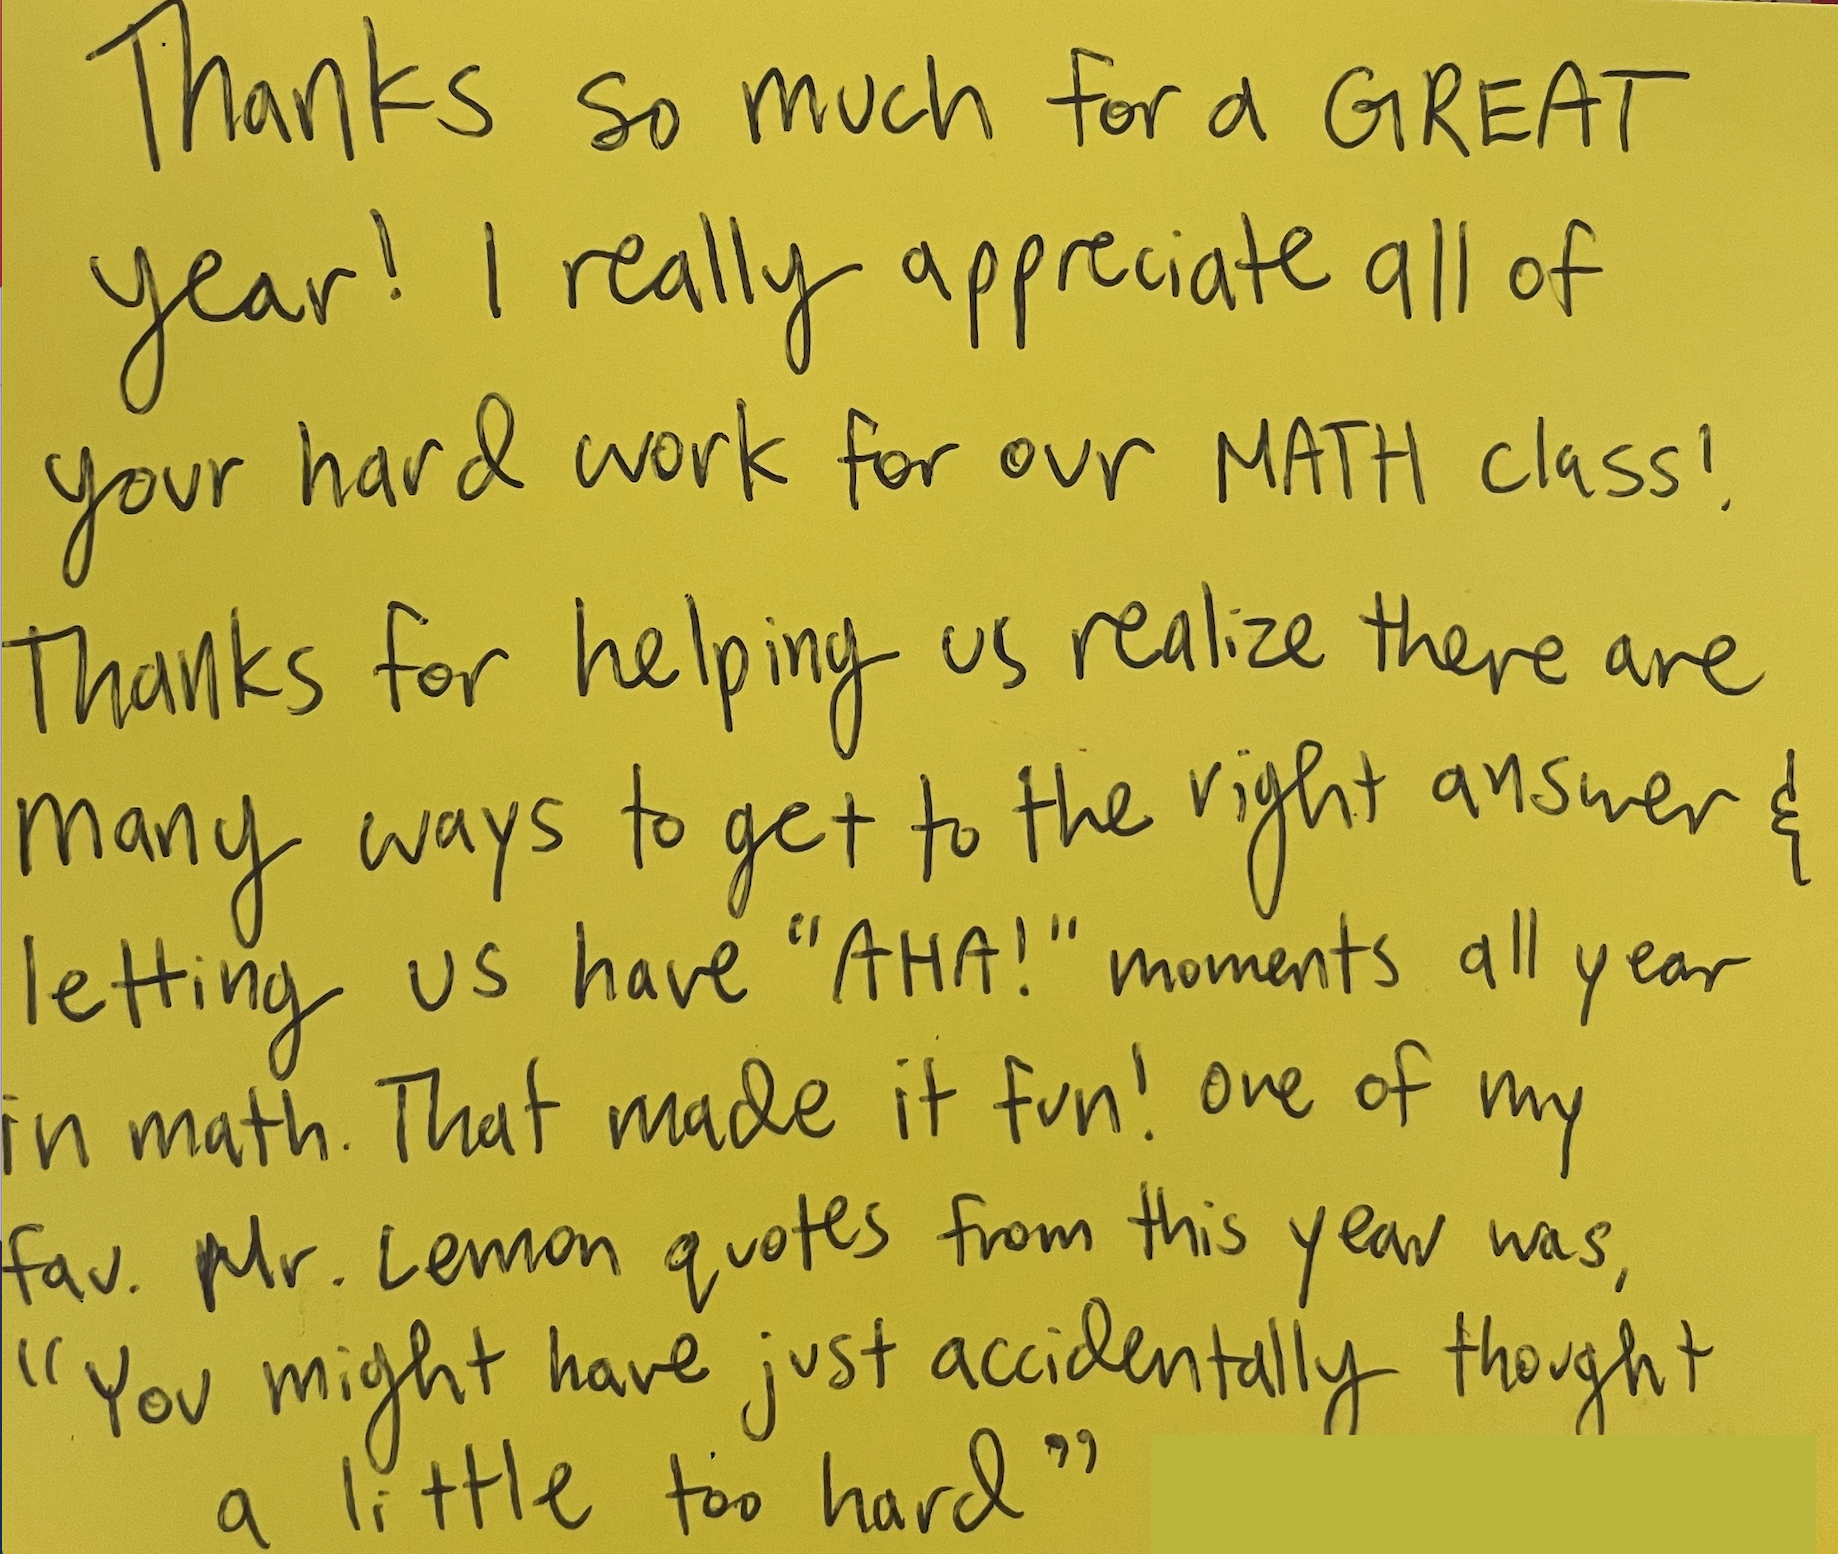 Thanks so much for a GREAT
year! I really appreciate all of
your hard work for our MATH class!
Thanks for helping us realize there are
many ways to get to the right answer &
letting us have "AHA!" moments all year
in math. That made it fun! One of my
fav. Mr. Lemon quotes from this year was,
"You might have just accidentally thought
a little too hard"